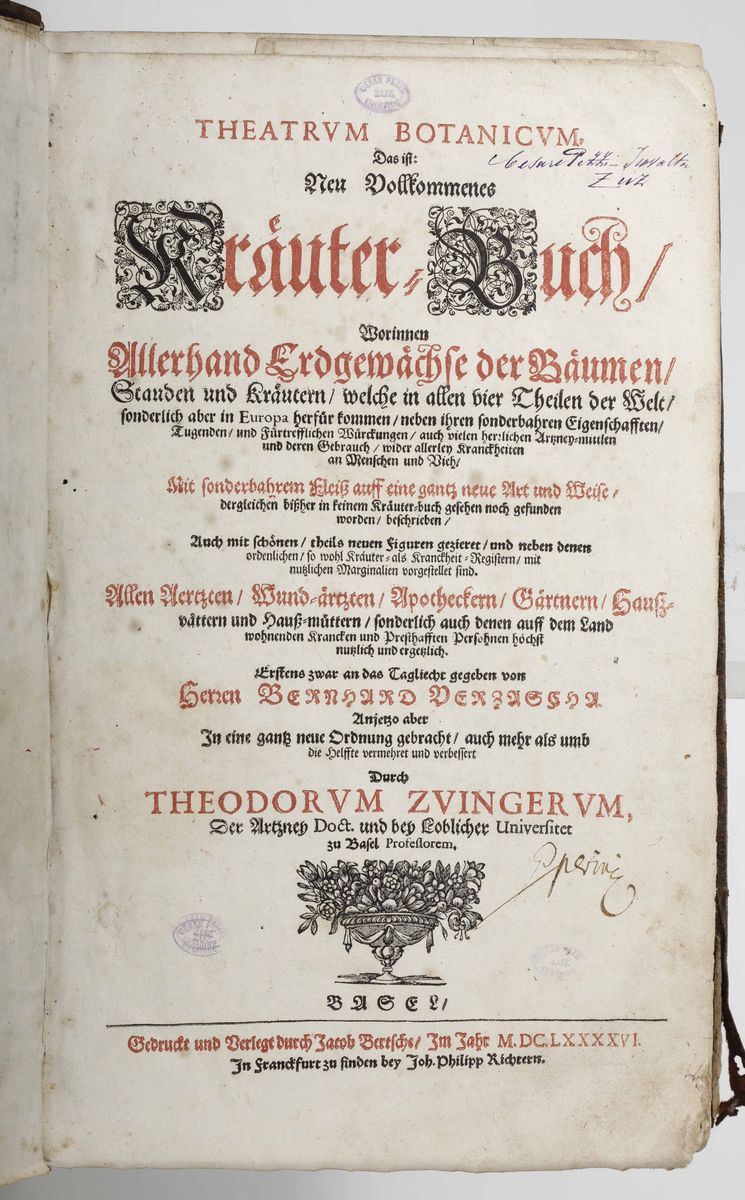 CESARE PEZZI
ZUZ
ENGADINE
THEATRVM BOTANICVM.
Das ist:
Neu Vollkommenes
Kräuter-Buch/
Worinnen
Allerhand Erdgewächse der Bäumen/
Stauden und Kräutern/ welche in allen vier Theilen der Welt/
sonderlich aber in Europa herfür kommen/ neben ihren sonderbahren Eigenschafften/
Tugenden/ und Fürtrefflichen Würckungen/ auch vielen herrlichen Artzney-mittlen
und deren Gebrauch/ wider allerley Kranckheiten
an Menschen und Vieh/
Mit sonderbahrem Fleiß auff eine gantz neue Art und Weise/
dergleichen bißher in keinem Kräuter-buch gesehen noch gefunden
worden/ beschrieben/
Auch mit schönen/ theils neuen Figuren gezieret/ und neben denen
ordenlichen/ so wohl Kräuter- als Kranckheit-Registern/ mit
nutzlichen Marginalien vorgestellet sind.
Allen Aertzten/ Wund-ärtzten/ Apotheckern/ Gärtnern/ Hauß-
vättern und Hauß-müttern/ sonderlich auch denen auff dem Land
wohnenden Krancken und Presthafften Persohnen höchst
nutzlich und ergetzlich.
Erstens zwar an das Tagliecht gegeben von
Herren BERNHARD VERZASCHA
Anjetzo aber
In eine gantz neue Ordnung gebracht/ auch mehr als umb
die Helffte vermehret und verbessert
Durch
THEODORVM ZVINGERVM,
Der Artzney Doct. und bey Loblicher Universitet
zu Basel Professorem.
BASEL/
Gedruckt und Verlegt durch Jacob Bertsche/ Im Jahr M.DC.LXXXXVI.
In Franckfurt zu finden bey Joh. Philipp Richtern.